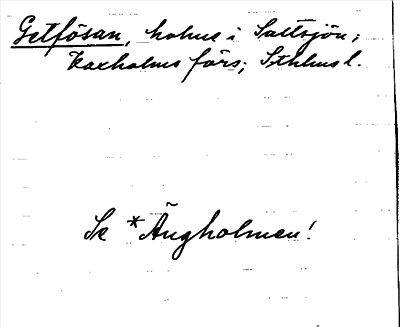 Getfösan, holme i Saltsjön;
Vaxholms förs; Sthlms l.
Se *Ängholmen!